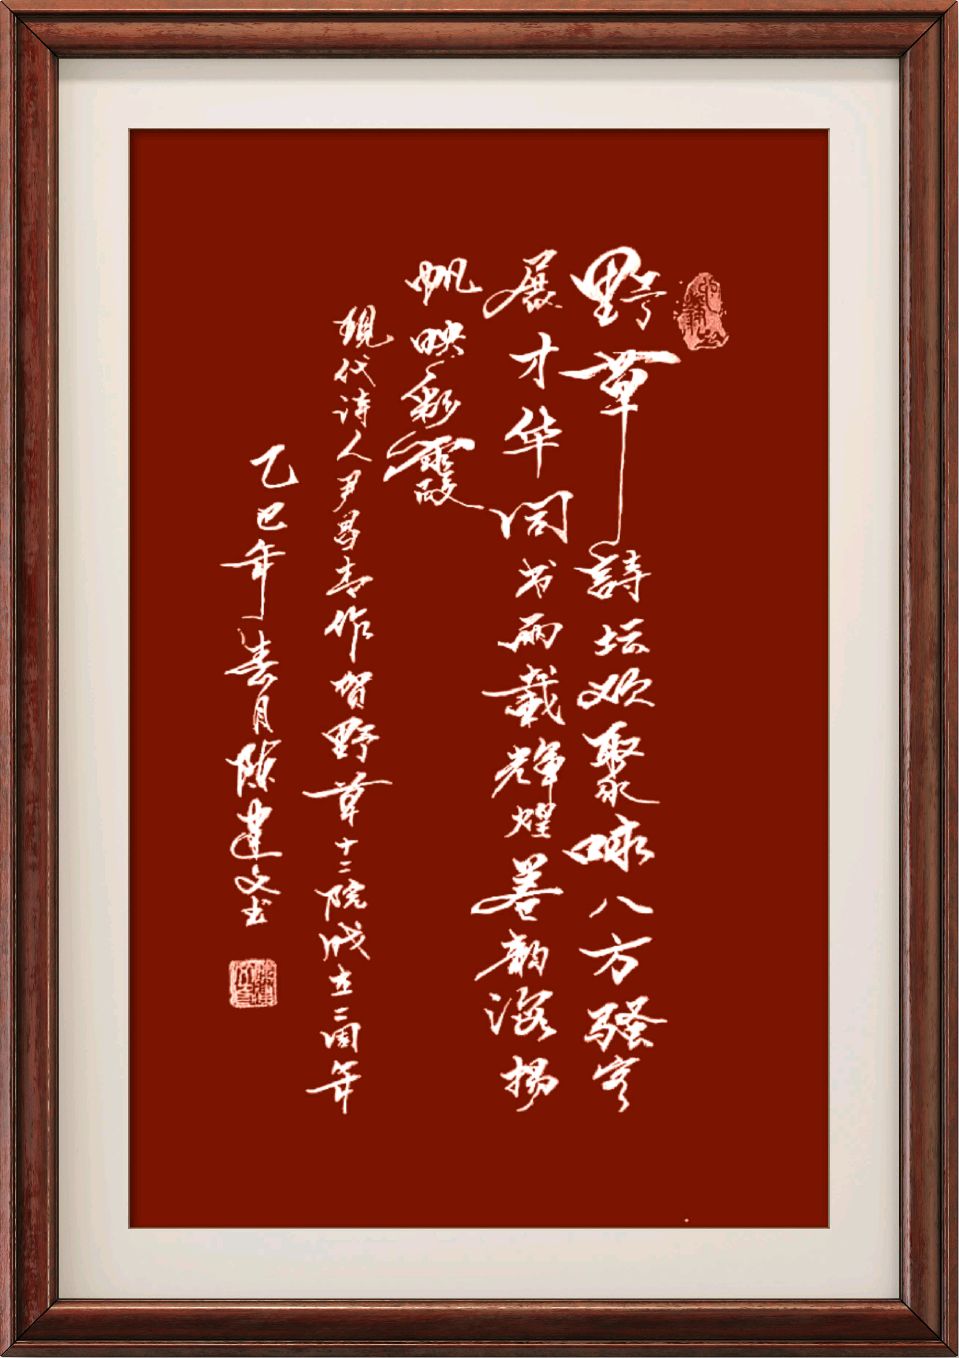 野草詩坛欢聚咏八方骚客
展才华同书两载辉煌卷韵海扬
帆映彩霞
现代诗人尹昌作贺野草十二院成立二周年
乙巳年春月陈建文书